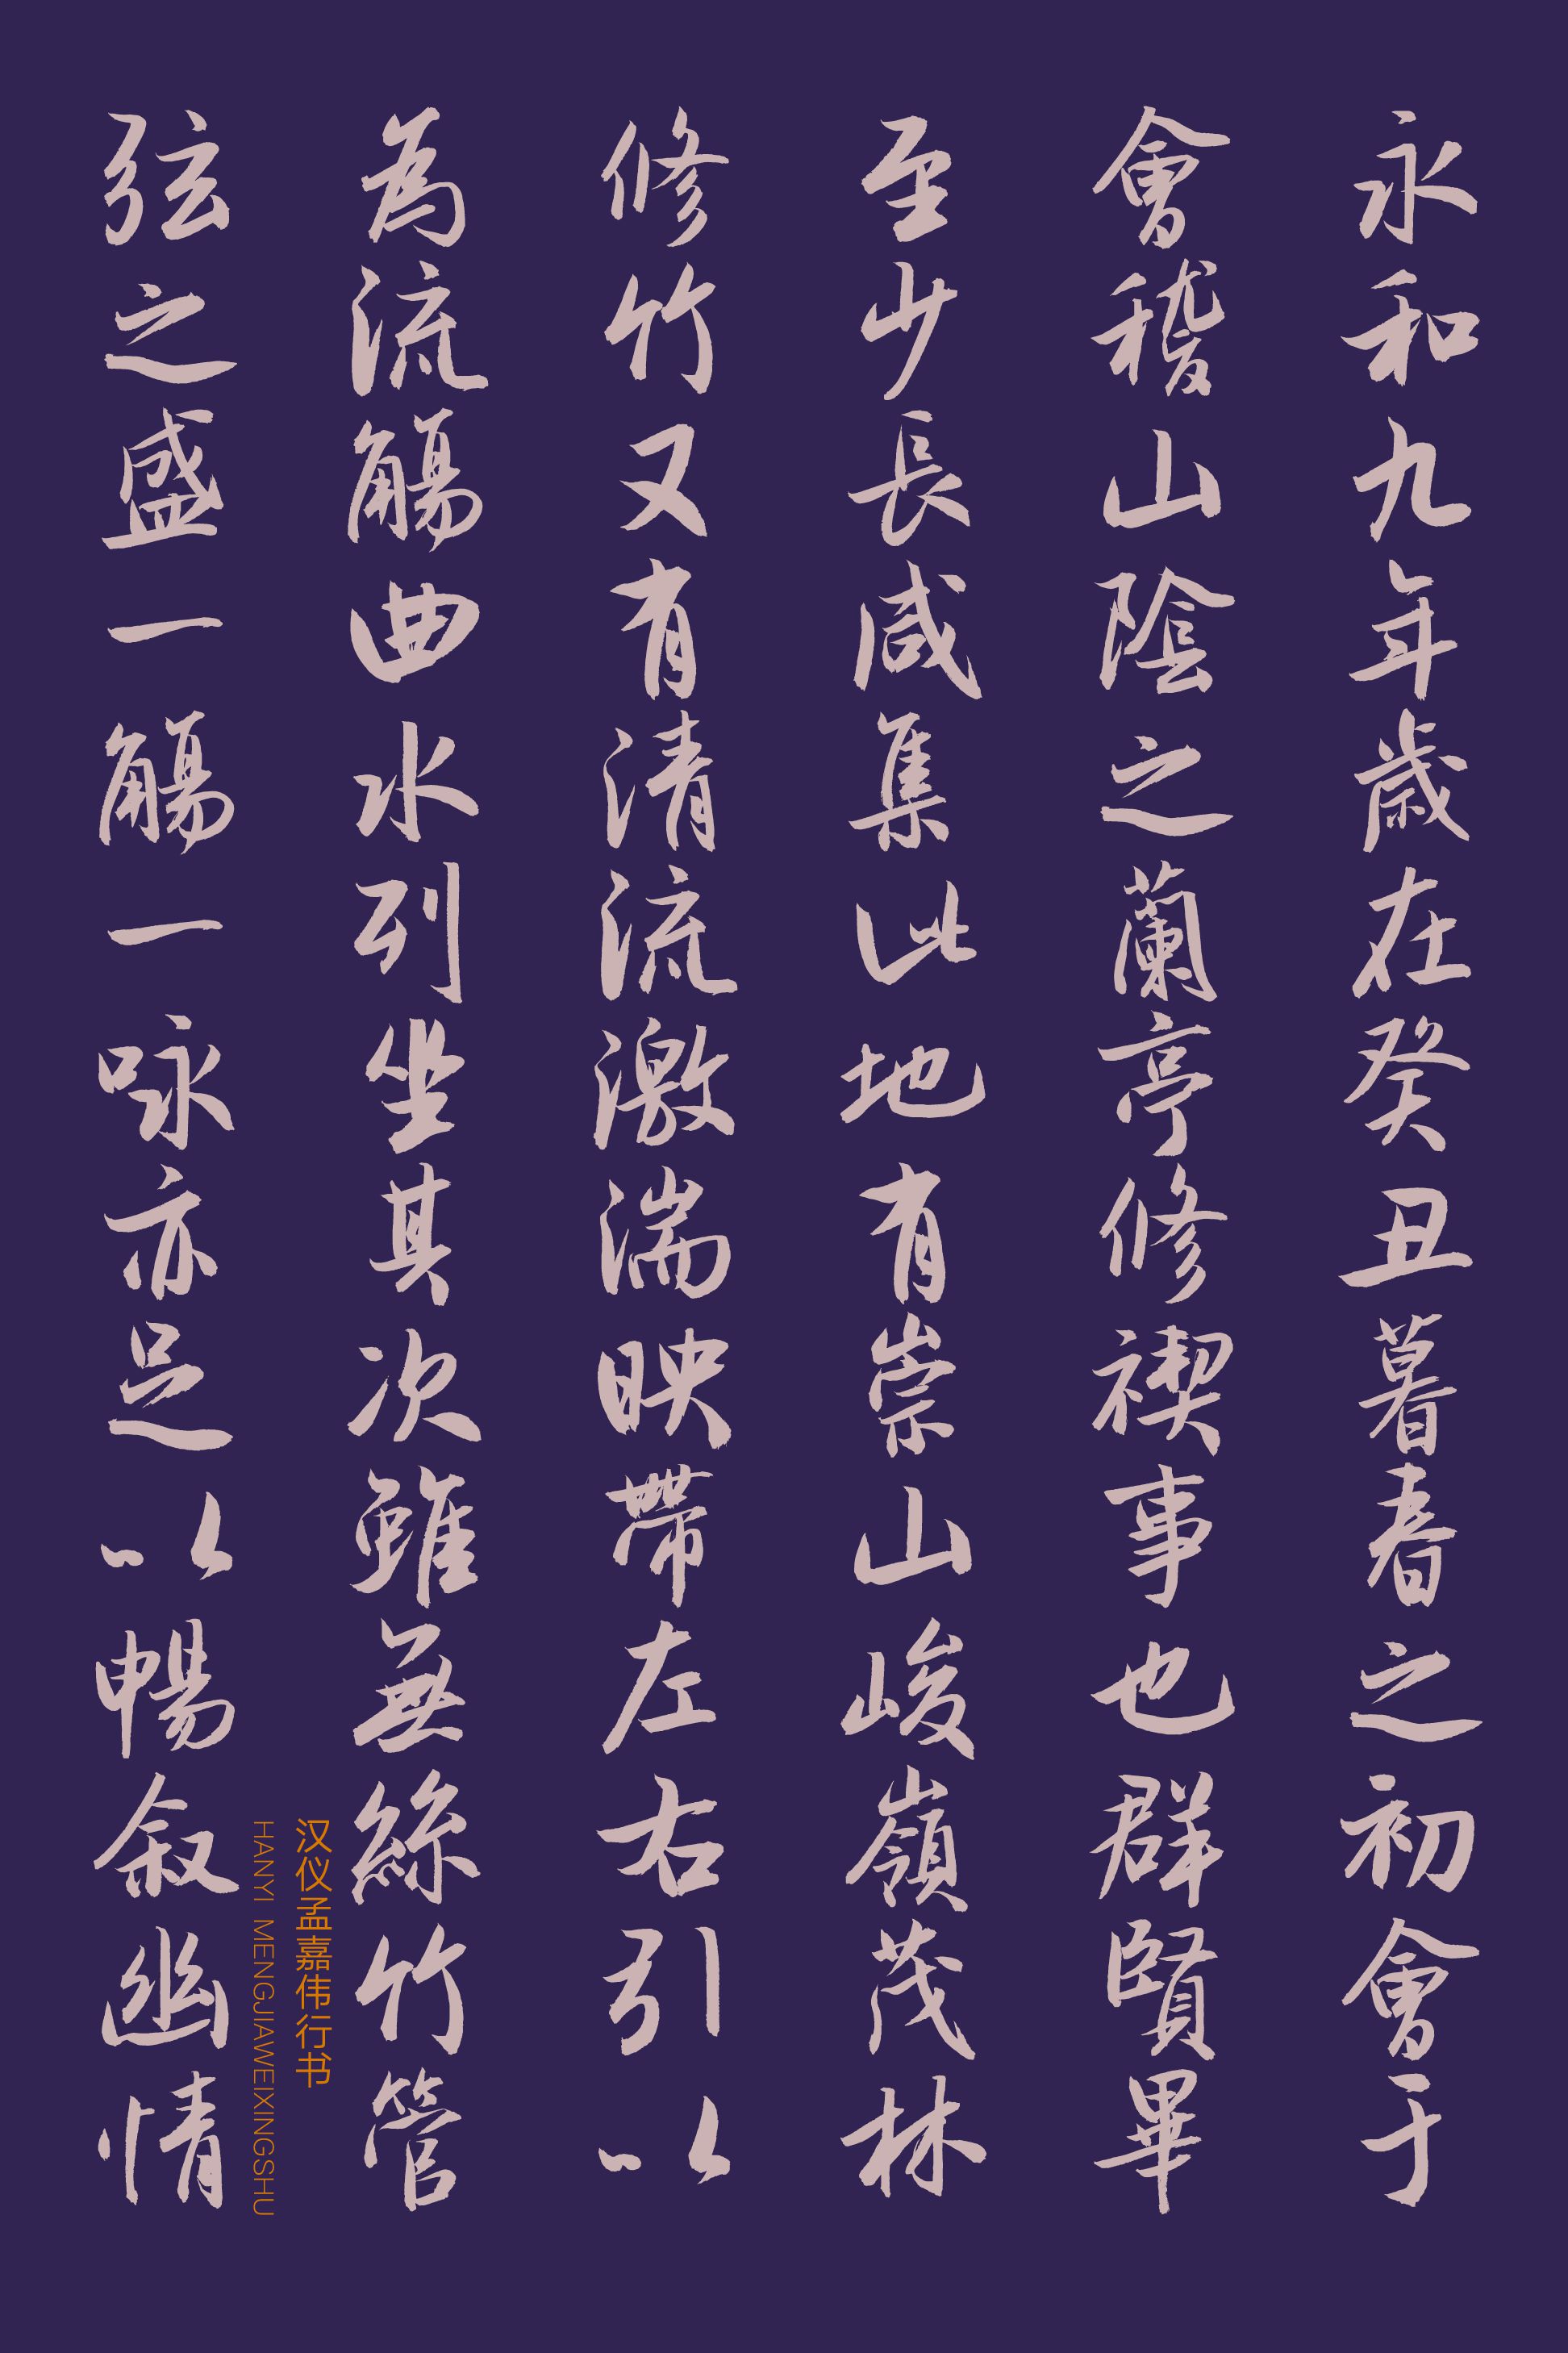 永和九年歲在癸丑暮春之初會于
會稽山陰之蘭亭修禊事也群賢畢
至少長咸集此地有崇山峻嶺茂林
修竹又有清流激湍映帶左右引以
為流觴曲水列坐其次雖無絲竹管
弦之盛一觴一咏亦足以暢叙幽情
汉仪孟嘉伟行书
HANYI MENGJIAWEIXINGSHU